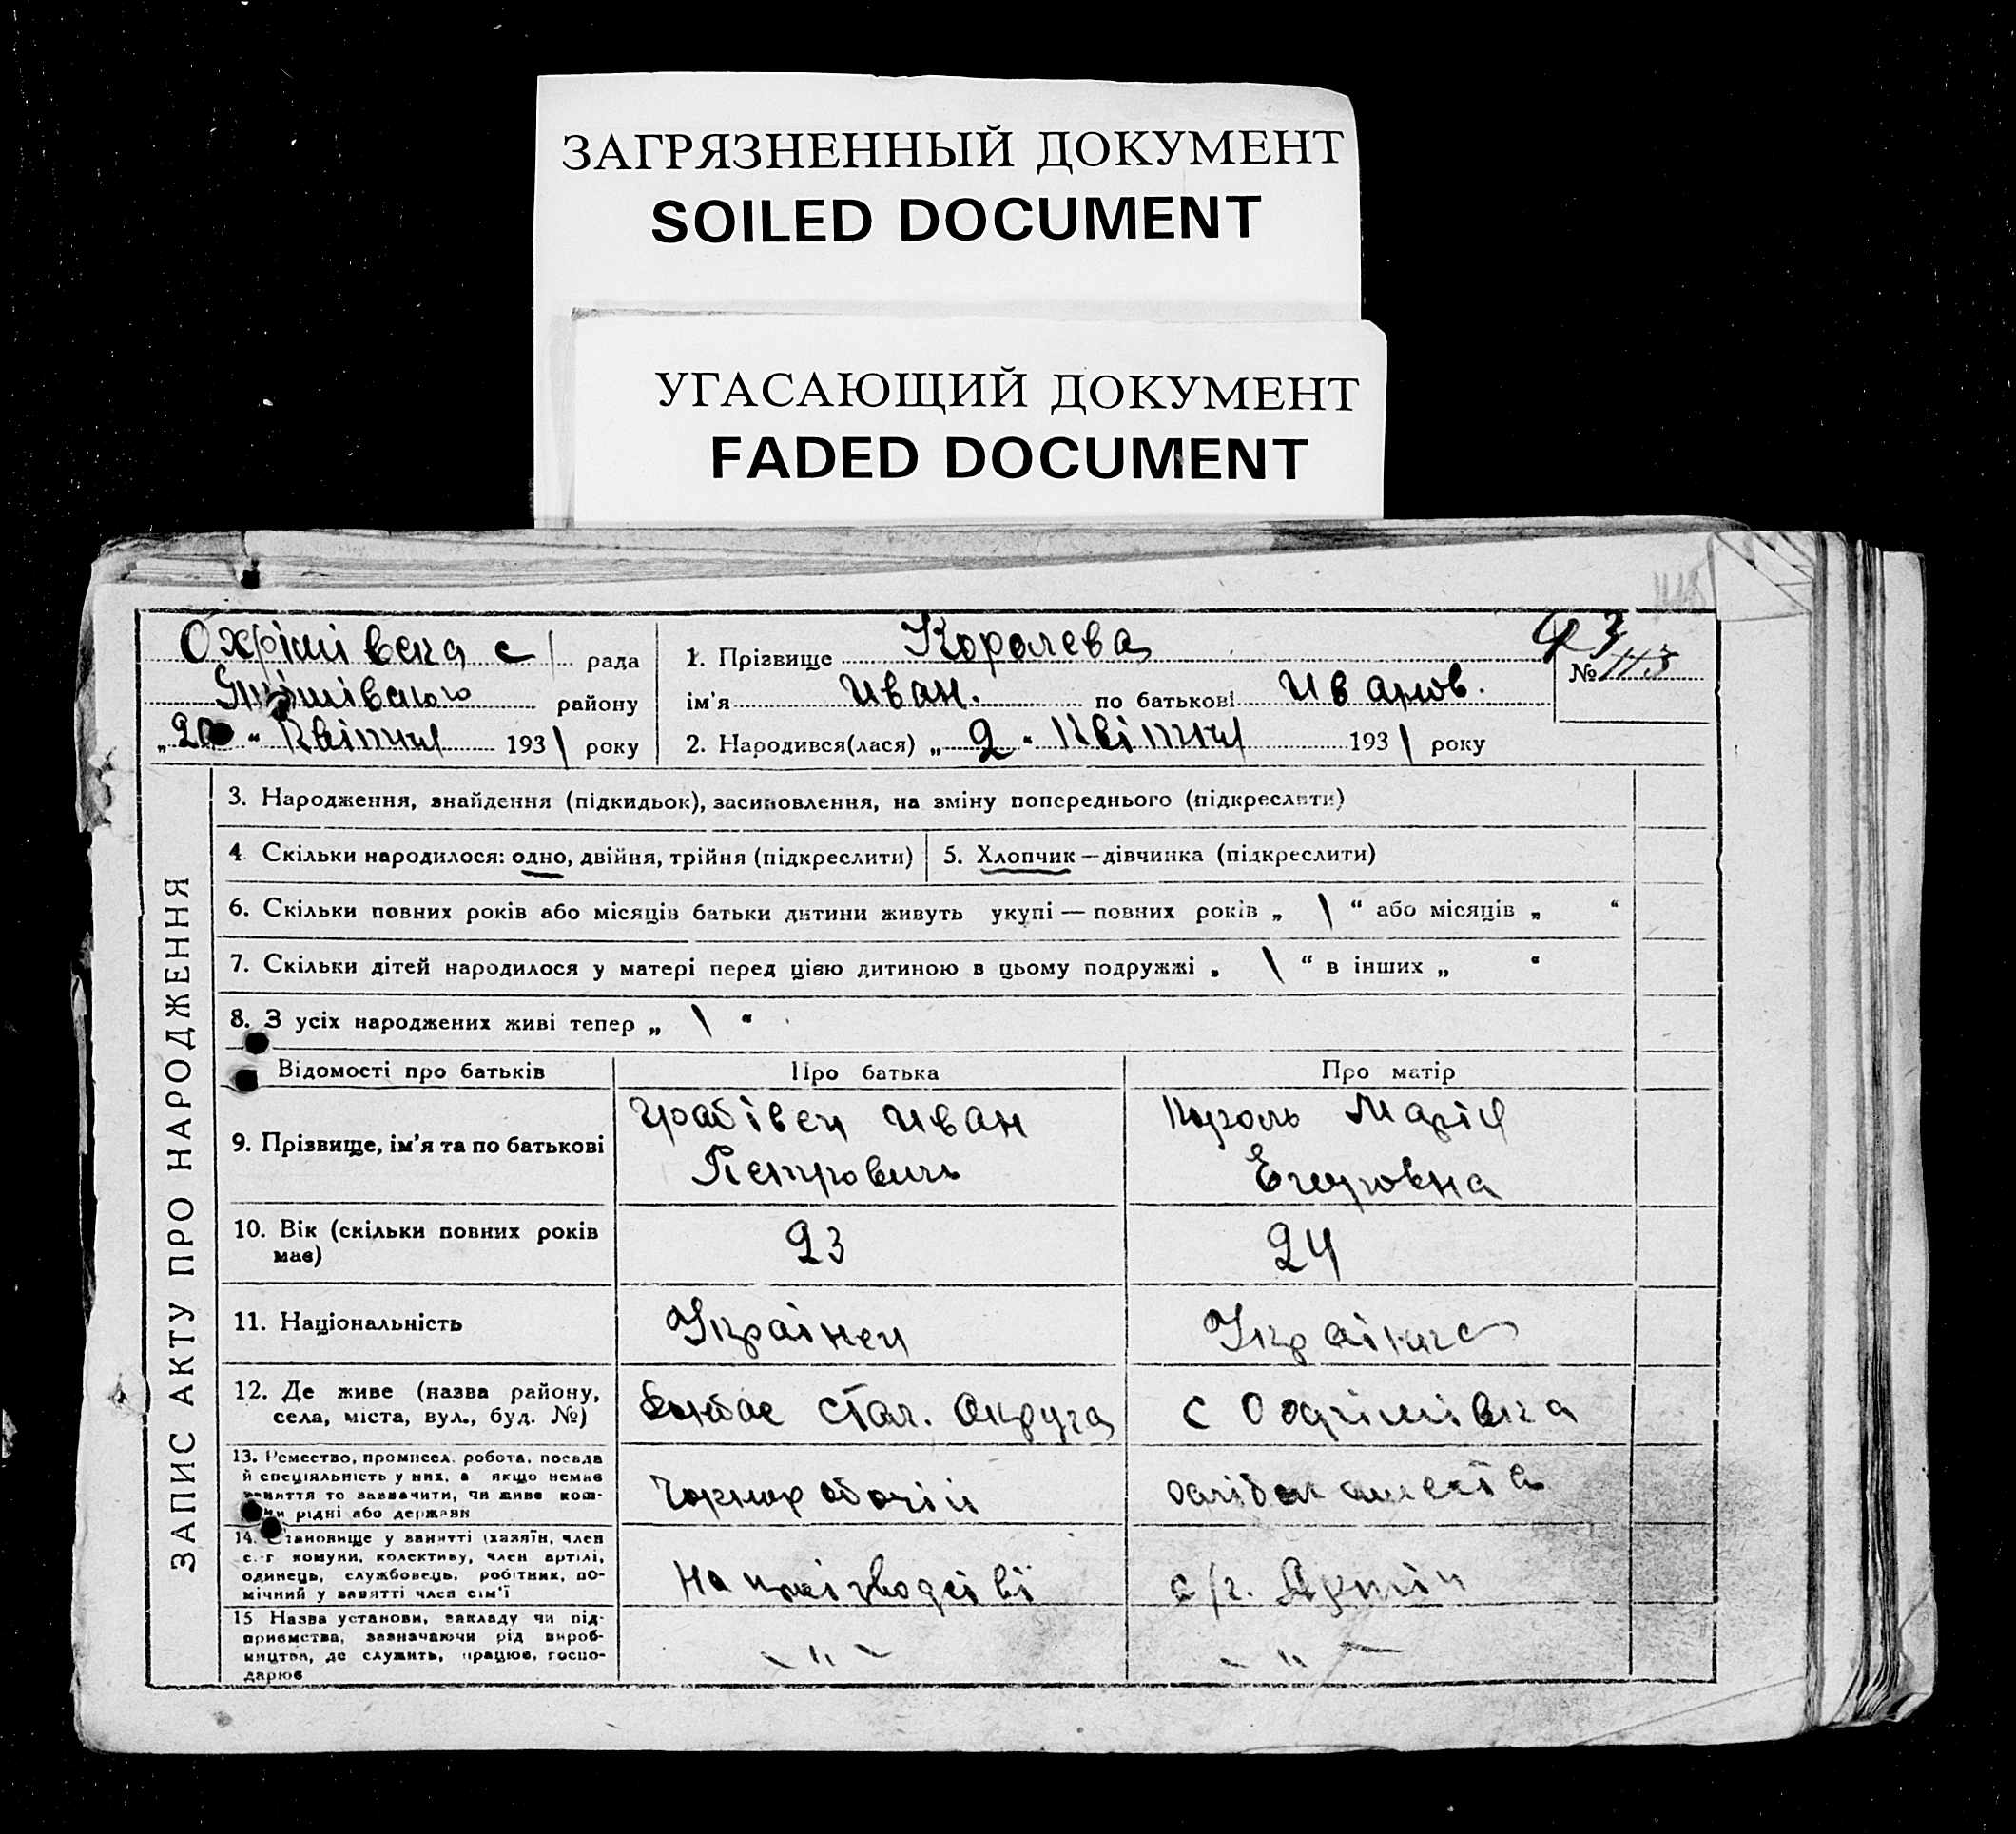 ЗАГРЯЗНЕННЫЙ ДОКУМЕНТ
SOILED DOCUMENT
УГАСАЮЩИЙ ДОКУМЕНТ
FADED DOCUMENT
Охрімівська с/ рада
району
„20“ Квітня 1931 року
1. Прізвище Королева
ім'я Иван. по батькові Иванов.
2. Народився(лася) „2“ Квітня 1931 року
№ 113
ЗАПИС АКТУ ПРО НАРОДЖЕННЯ
3. Народження, знайдення (підкидьок), засиновлення, на зміну попереднього (підкреслити)
4. Скільки народилося: одно, двійня, трійня (підкреслити)
5. Хлопчик — дівчинка (підкреслити)
6. Скільки повних років або місяців батьки дитини живуть укупі — повних років „ \ “ або місяців „ “
7. Скільки дітей народилося у матері перед цією дитиною в цьому подружжі „ \ “ в інших „ “
8. З усіх народжених живі тепер „ \ “
Відомості про батьків Про батька Про матір
9. Прізвище, ім'я та по батькові
Грабівец Иван
Петрович
Король Марія
Егоровна
10. Вік (скільки повних років
має)
23
24
11. Національність
Українец
Українка
12. Де живе (назва району,
села, міста, вул., буд. №)
Стал. Округа
с
13. Ремество, промисел, робота, посада
й спеціяльність у них, а якщо немає
заняття то зазначити, чи живе кош-
рідні або держави
Чорнорабочій
14. Становище у занятті (хазяїн, член
с.-г комуни, колективу, член артілі,
одинець, службовець, робітник, по-
мічний у занятті член сім'ї
На
с/г. Артіл
15 Назва установи, закладу чи під-
приємства, зазначаючи рід вироб-
ництва, де служить, працює, госпо-
дарює
- " -
- " -